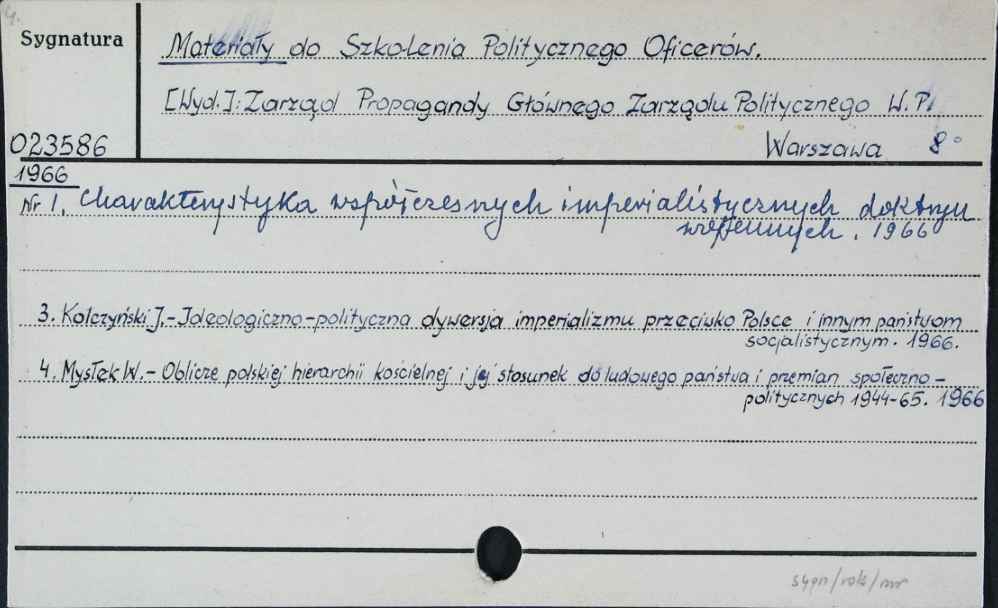 4.
Sygnatura
Materiały do Szkolenia Politycznego Oficerów.
[Wyd.]: Zarząd Propagandy Głównego Zarządu Politycznego W.P.
023586
Warszawa 8°
1966
Nr 1. Charakterystyka współczesnych imperialistycznych doktryn
wojennych. 1966
3. Kolczyński J.-Ideologiczno-polityczna dywersja imperializmu przeciwko Polsce i innym państwom
socjalistycznym. 1966.
4. Mysłek W.- Oblicze polskiej hierarchii kościelnej i jej stosunek do ludowego państwa i przemian społeczno-
politycznych 1944-65. 1966
sygn/rok/nr